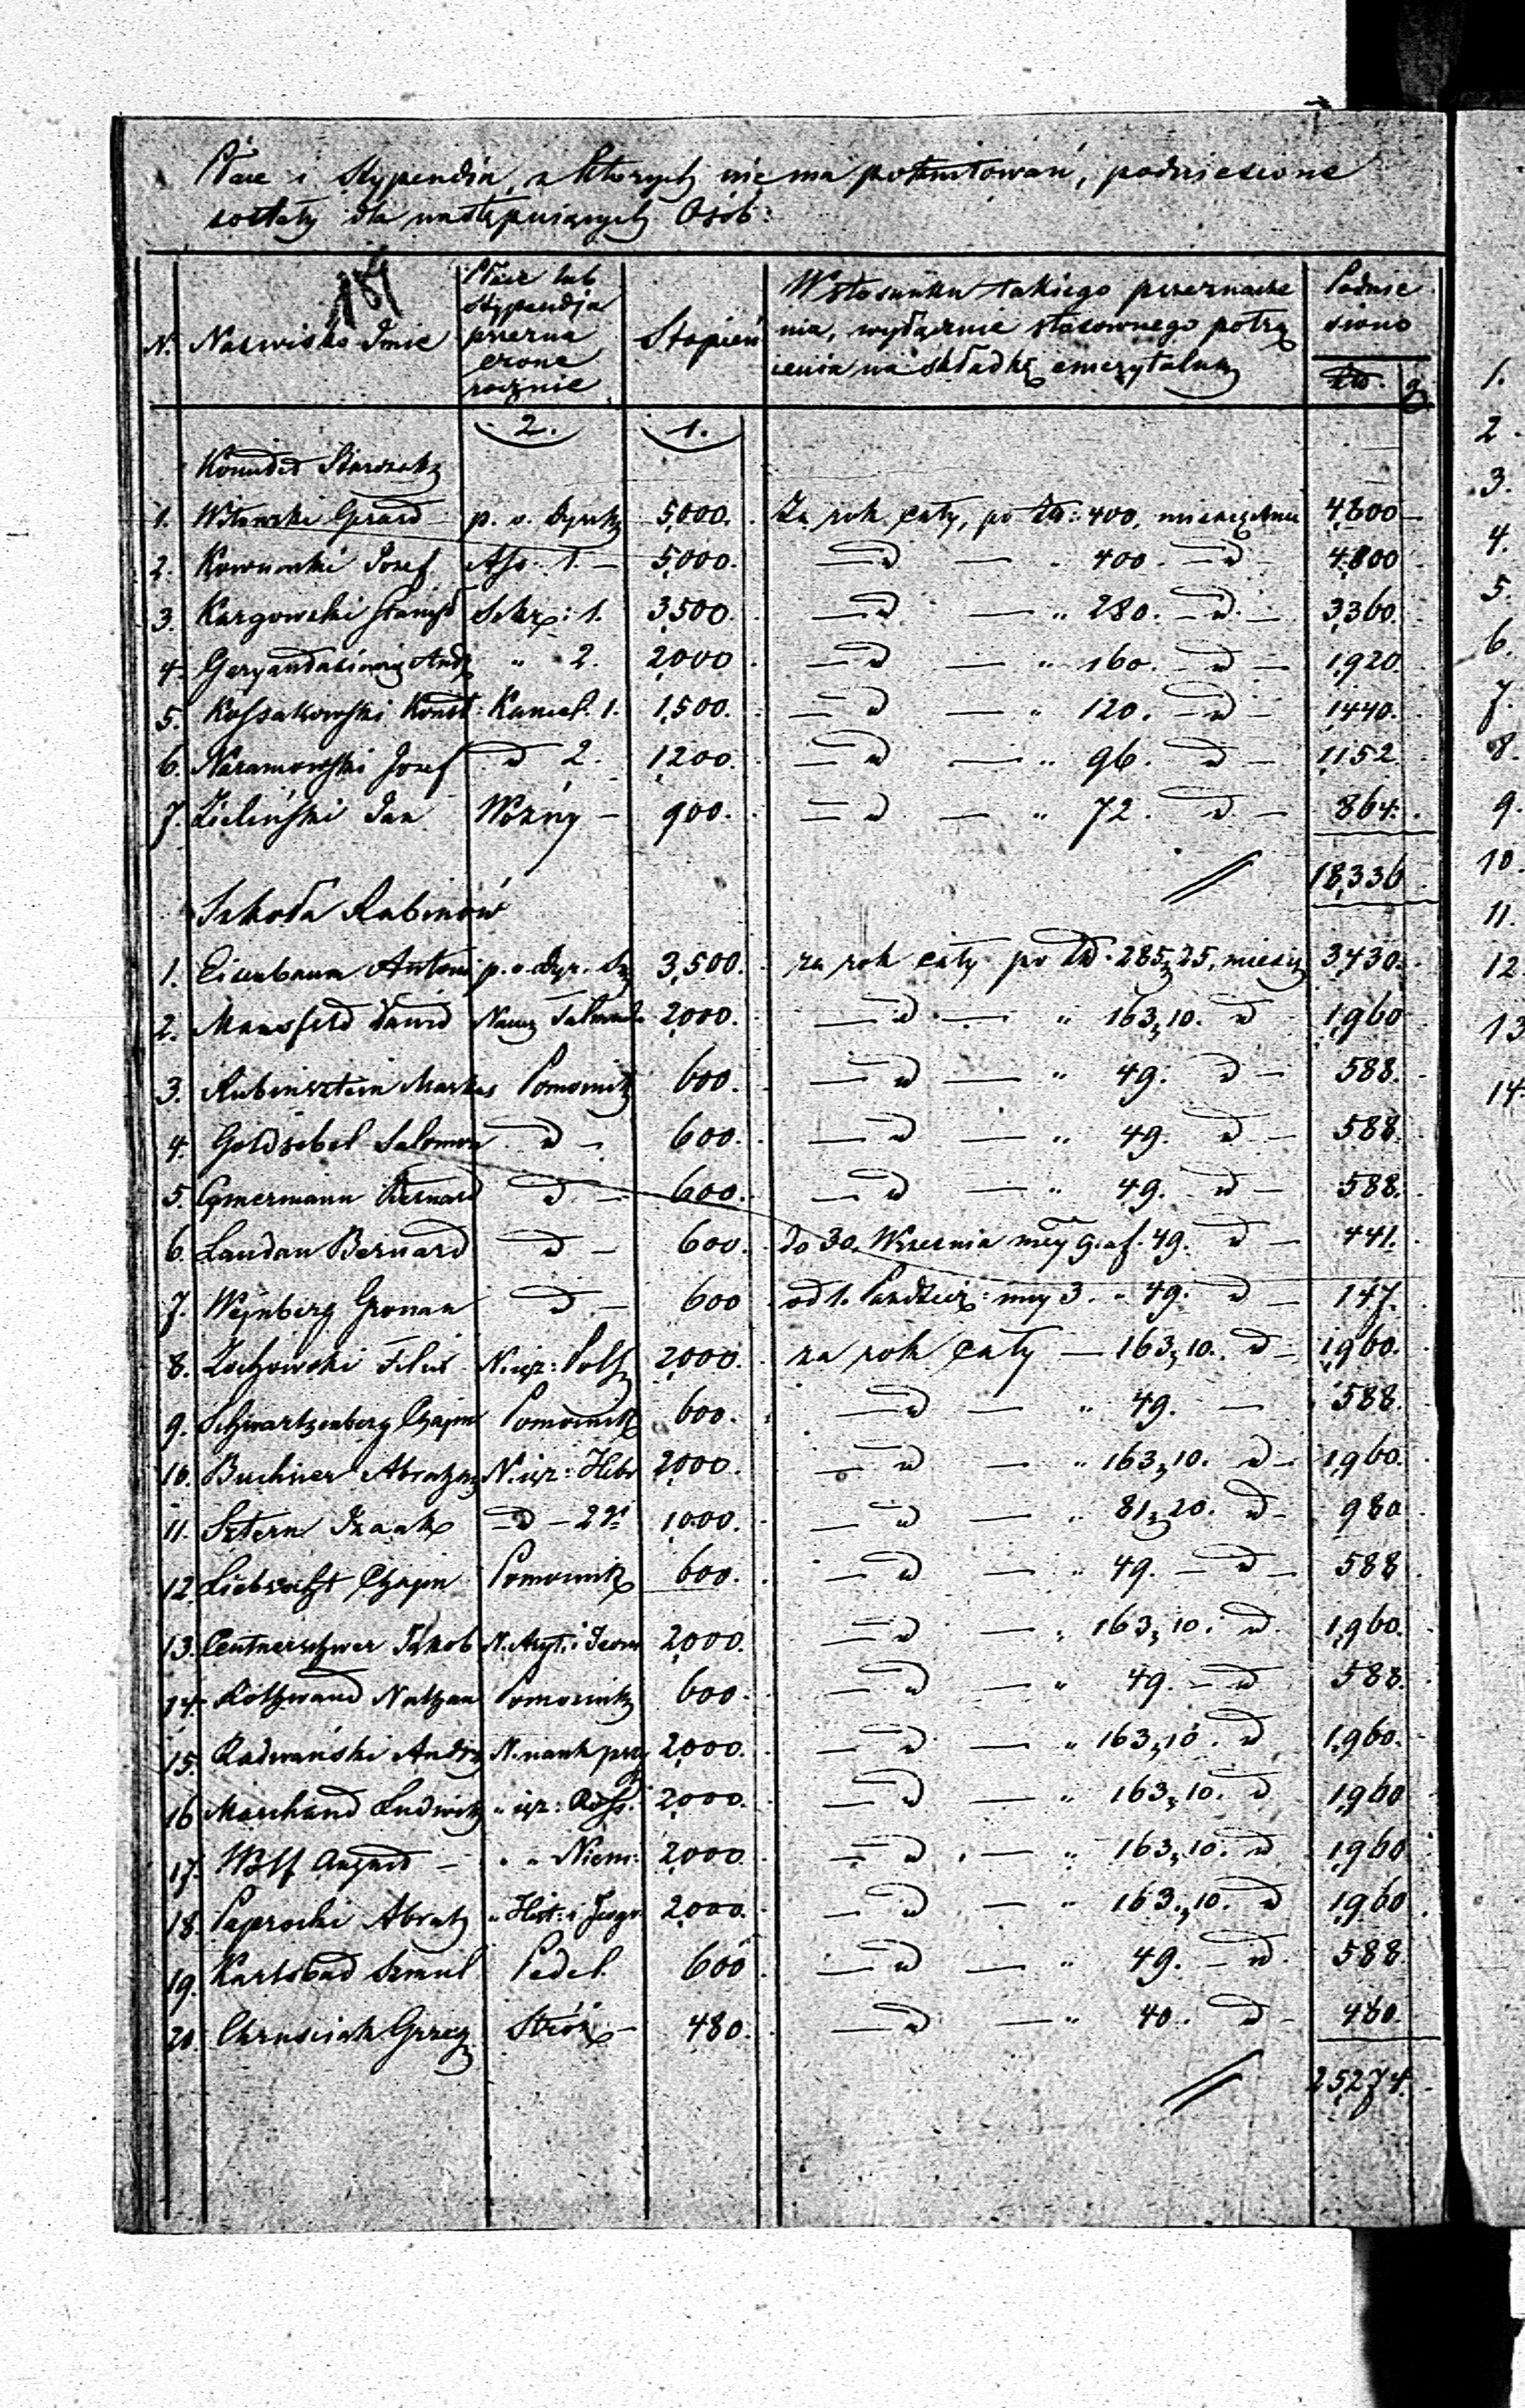 Płace i stypendia, z których nie ma pokwitowań, podniesione
zostały dla następuiących Osób:
184
N. Nazwisko Imie Płace lub stypendja przezna czone rocznie Stopień W stosunku takiego przeznacze nia, wyłącznie stosownego potrą cenia na składkę emerytalną Podnie siono Zło. g
2. 1.
Komitet Starozak
1. Witowski Gerard p. o. Dyrek 5,000. Za rok cały, po Zło: 400, miesięcznie 4800
2. Kownacki Józef Ass. 1. 5,000. d — " 400. d 4,800
3. Kargowski Stanisł Sekr: 1. 3,500. d — " 280. d 3,360.
4. Andr " 2. 2,000 d — " 160. d 1,920
5. Kossakowski Konst: Kancel. 1. 1,500. d — " 120. d 1,440.
6. Naramowski Jozef d 2. 1,200. d — " 96. d 1,152.
7. Zieliński Jan Woźny — 900. d — " 72. d 864.
18,336
Szkoła Rabinów
1. Eisenbaum Antoni p. o. Dyr. Sz 3,500. za rok cały po Zło. 285,,25, miesięcz 3430.
2. Mansfeld Dawid Naucz Talmudu 2,000. d — " 163,,10. d 1,960
3. Rubinsztein Markus Pomocnik 600. d — " 49. d 588.
4. Goldsobel Salomon d 600. d — " 49. d 588.
5. Cymermann Bernard d — 600. d — " 49. d 588.
6. Landau Bernard d — 600. do 30. Września mcy 9. af. 49. d 441.
7. Wejnberg Gronan d — 600 od 1. Paździer: mcy 3. " 49. d 147.
8. Żochowski Felix N. ięz: Pols 2,000. za rok cały — 163,,10. d 1,960.
9. Schwartzenberg Chaim Pomocnik 600. d — " 49. — 588.
10. Buchner Abraham N. ięz: Hebr 2,000. d — " 163,,10. d 1,960.
11. Sztern Izaak d — 2gi 1000. d — " 81,,20. d 980
12. Liebrecht Chaim Pomocnik 600. d — " 49. d 588
13. Centnerschwer Jakob N. Aryt. i Jeom 2,000. d — " 163,,10. d 1,960.
14. Rothwand Nathan Pomocnik 600. d — " 49. d 588.
15. Radwański Andrz N. nauk przy 2,000. d — " 163,,10. d 1,960.
16 Marchand Ludwik " ięz: Ross. 2,000. d — " 163,,10. d 1,960
17. Wolf August — " " Niem: 2,000 d — " 163,,10. d 1,960
18. Paprocki Abrah " Hist: i Jeogr 2,000. d — " 163,,10. d 1,960
19. Karlsbad Szmul Pedel. 600 d — " 49. d 588.
20. Chruściak Grzeg Stróż — 480. d — " 40. d 480.
25274.
1.
2.
3.
4.
5.
6.
7.
8.
9.
10.
11.
12.
13
14.